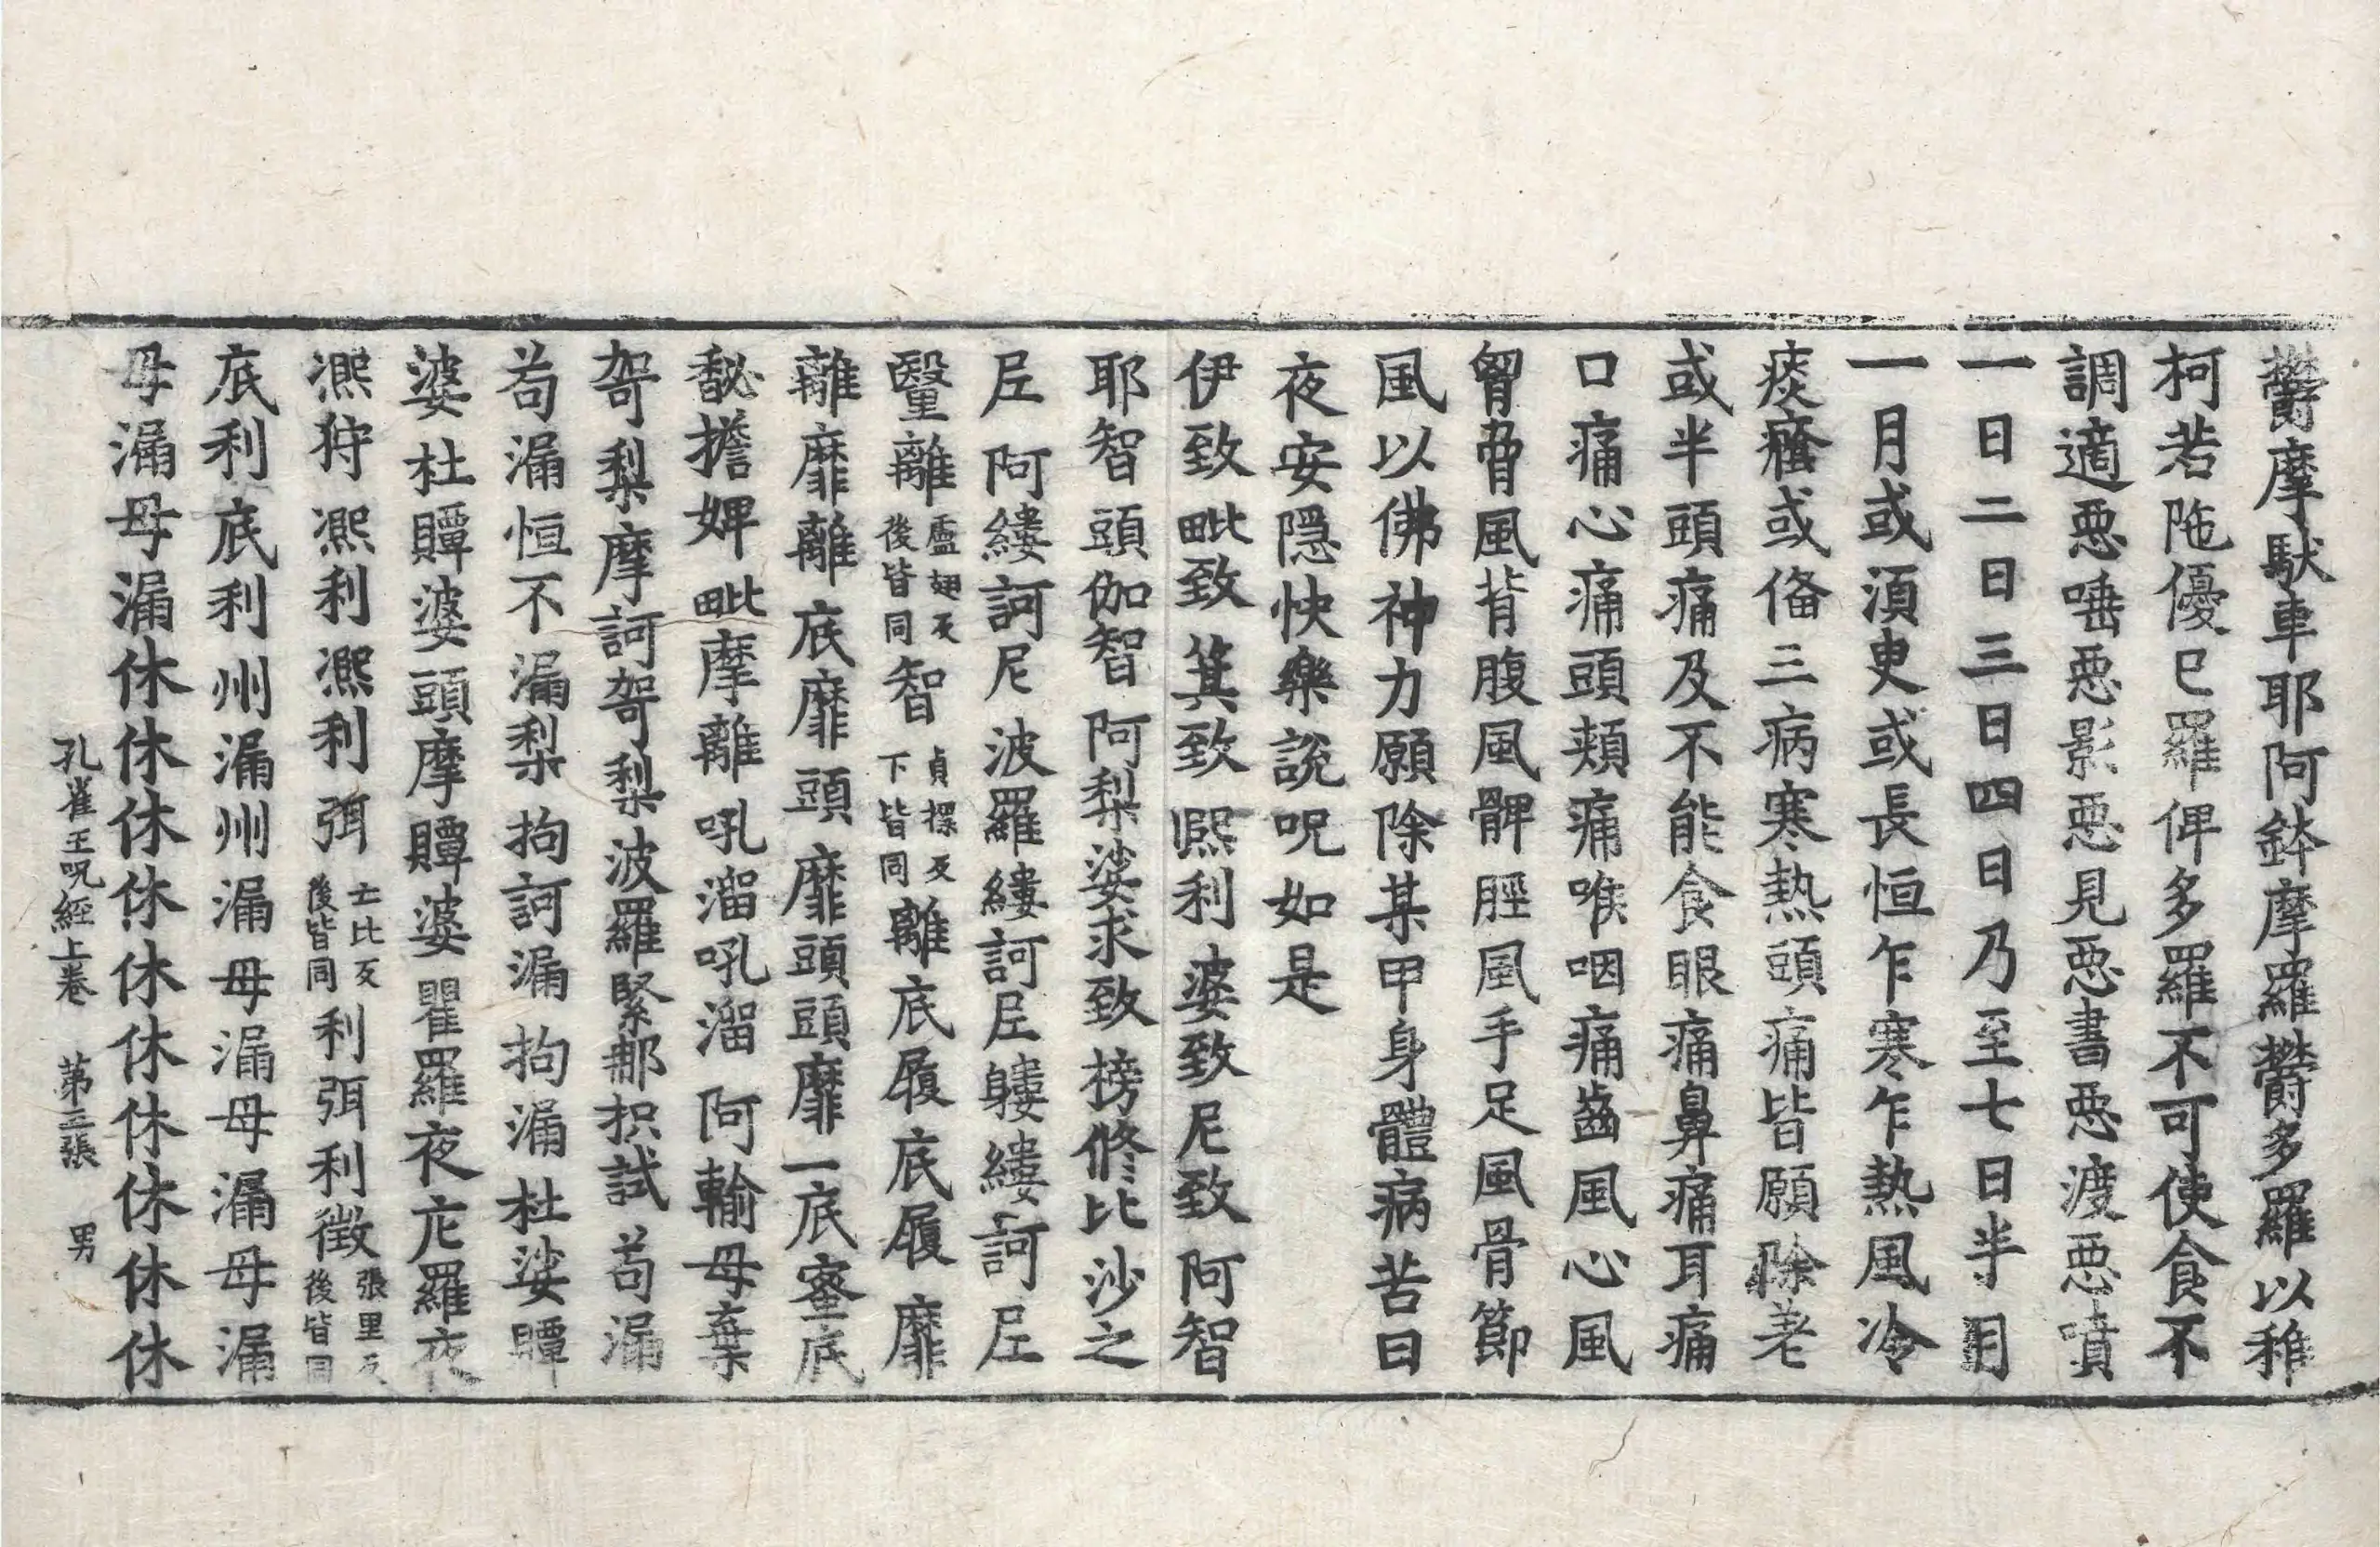 欝摩馱車耶阿鉢摩羅欝多羅以稚
柯若陁優巳羅俾多羅不可使食不
調適惡唾惡影惡見惡書惡渡惡噴
一日二日三日四日乃至七日半月
一月或湏臾或長恒乍寒乍熱風冷
痰癊或俻三病寒熱頭痛皆願除差
或半頭痛及不能食眼痛鼻痛耳痛
口痛心痛頭頰痛喉咽痛齒風心風
胷脅風背腹風髀脛風手足風骨節
風以佛神力願除某甲身體病苦日
夜安隱快樂說呪如是
伊致毗致箕致熈利婆致尼致阿智
耶智頭伽智阿梨娑求致榜修比沙之
𡰱阿縷訶尼波羅縷訶𡰱𨈓縷訶𡰱
翳離盧翅反後皆同智貞櫟反下皆同離底履底履靡
離靡離底靡頭靡頭頭靡一底蜜底
馝擔婢毗摩離吼溜吼溜阿輸母棄
哿梨摩訶哿梨波羅緊那抧試茍漏
茍漏恒不漏梨拘訶漏拘漏杜娑贉
婆杜贉婆頭摩贉婆瞿羅夜庀羅夜
凞狩凞利凞利弭亡比反後皆同利弭利徵張里反後皆同
底利底利州漏州漏母漏母漏母漏
母漏母漏休休休休休休休休休休
孔雀王呪經上卷　第三張　男